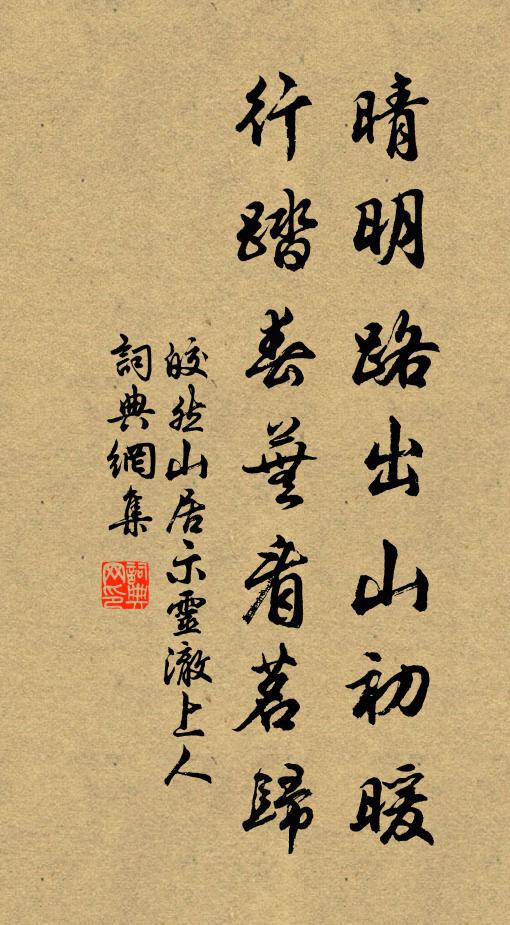 晴明路出山初暖
行踏春蕪看茗歸
皎然山居示靈澈上人
詞典網集
詞典網印